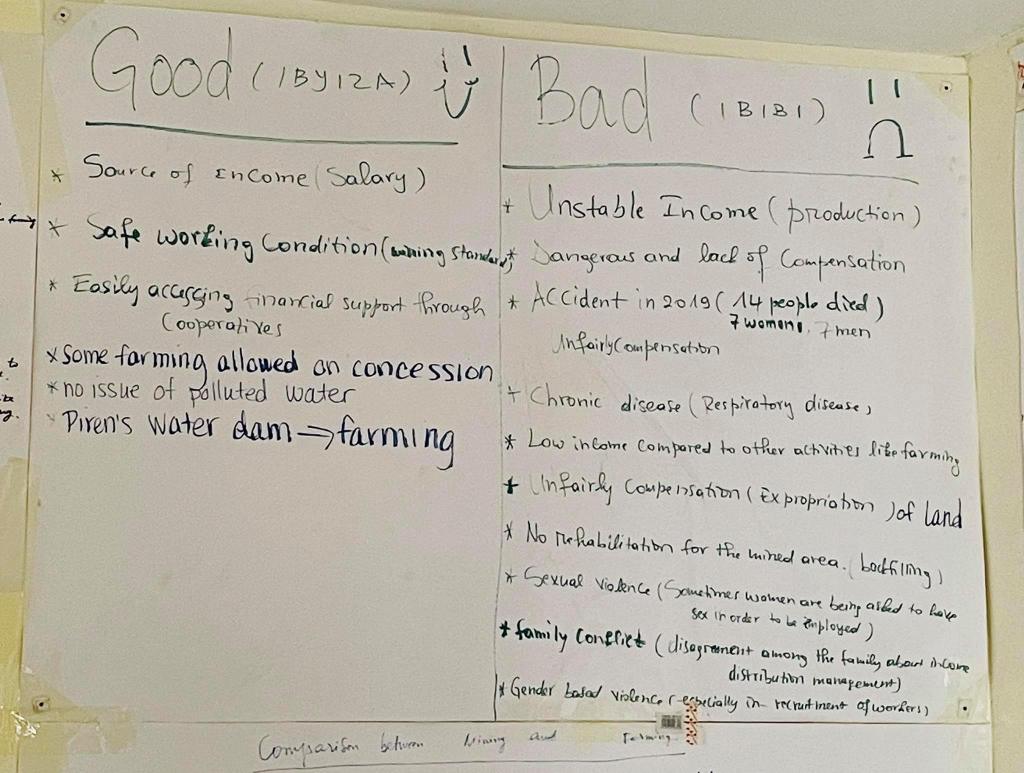 Good (IBYIZA)
* Source of Encome (Salary)
* Safe working Condition (mining standards)
* Easily accessing financial support through
Cooperatives
* Some farming allowed on concession
* no issue of polluted water
* Piren's Water dam → farming
Bad (IBIBI)
* Unstable Income (production)
* Dangerous and lack of Compensation
* Accident in 2019 (14 people died)
7 womens, 7 men
Unfairly Compensation
+ Chronic disease (Respiratory disease)
* Low income compared to other activities like farming
+ Unfairly Compensation (Expropriation) of land
* No rehabilitation for the mined area. (backfilling)
* Sexual violence (Sometimes women are being asked to have
sex in order to be employed)
* family conflict (disagreement among the family about income
distribution management)
* Gender based violence (especially in recruitment of workers)
Comparison between Mining and Farming
to